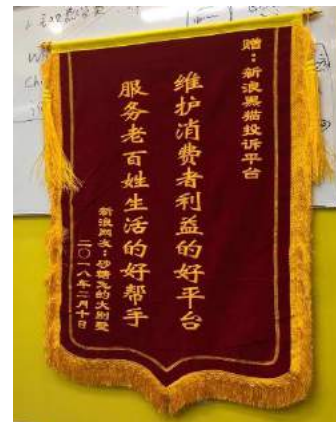 赠：新浪黑猫投诉平台
维护消费者利益的好平台
服务老百姓生活的好帮手
新浪网友：砂糖儿的大别墅
二〇一八年二月十日